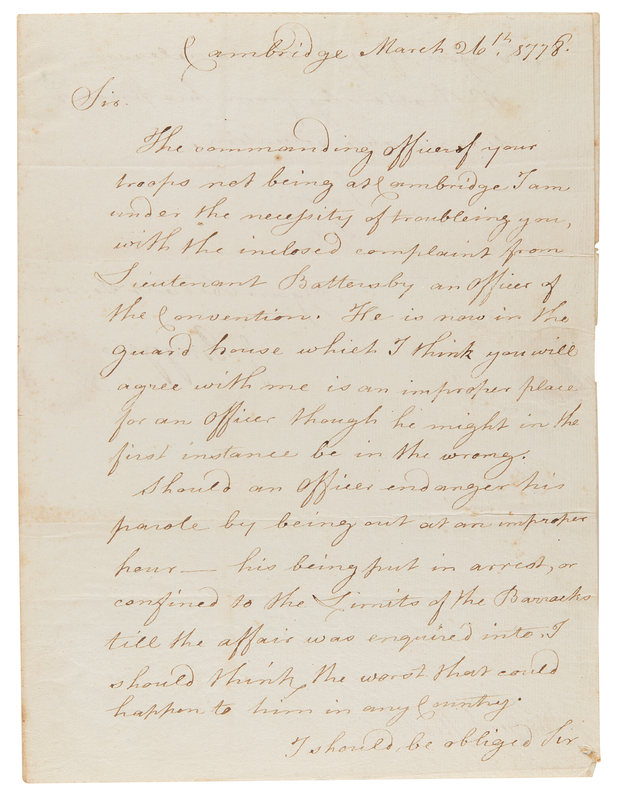 Cambridge March 26th. 1778.
Sir.
The commanding officer of your
troops not being at Cambridge I am
under the necessity of troubleing you,
with the inclosed complaint from
Lieutenant Battersby an officer of
the Convention. He is now in the
guard house which I think you will
agree with me is an improper place
for an officer though he might in the
first instance be in the wrong.
Should an officer endanger his
parole by being out at an improper
hour — his being put in arrest, or
confined to the Limits of the Barracks
till the affair was enquired into. I
should think, the worst that could
happen to him in any Country.
I should, be obliged Sir